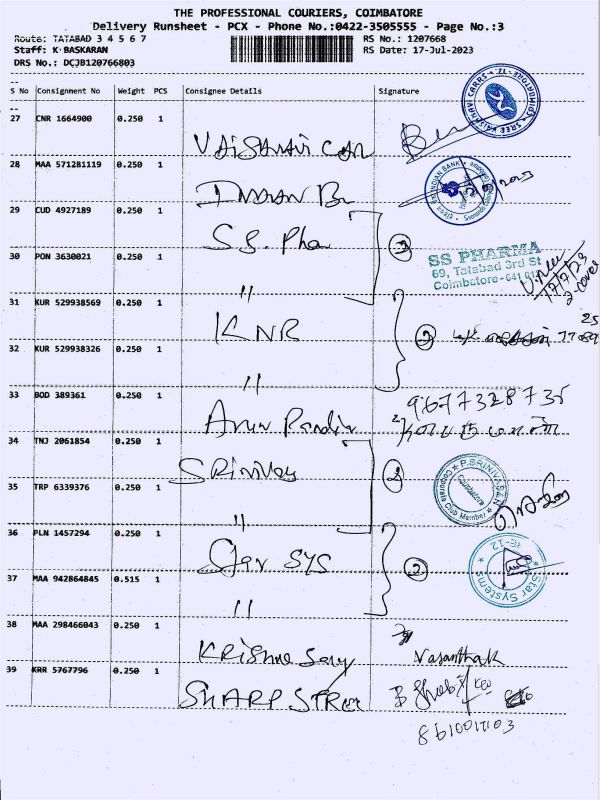 THE PROFESSIONAL COURIERS, COIMBATORE
Delivery Runsheet - PCX - Phone No.:0422-3505555 - Page No.:3
Route: TATABAD 3 4 5 6 7
RS No.: 1207668
Staff: K BASKARAN
RS Date: 17-Jul-2023
DRS No.: DCJB120766803
S No Consignment No Weight PCS Consignee Details Signature
27 CNR 1664900 0.250 1
VAISHNAVI CAR
28 MAA 571281119 0.250 1
INDIAN BANK
29 CUD 4927189 0.250 1
S.S. Pha
2
SS PHARMA
69, Tatabad 3rd St
Coimbatore-641 012
30 PON 3630021 0.250 1
"
17/7/23
2-cover
31 KUR 529938569 0.250 1
KNR
2
25
32 KUR 529938326 0.250 1
"
33 BOD 389361 0.250 1
Arun Pandia
9677328735
34 TNJ 2061854 0.250 1
Srinivas
2
P.SRINIVASAN
Corporate Club Member
Coimbatore
35 TRP 6339376 0.250 1
"
36 PLN 1457294 0.250 1
Star SYS
2
Star Systems
37 MAA 942864845 0.515 1
"
38 MAA 298466043 0.250 1
Krishna Sary
Vasanthak
39 KRR 5767796 0.250 1
SHARP STREE
8610017103